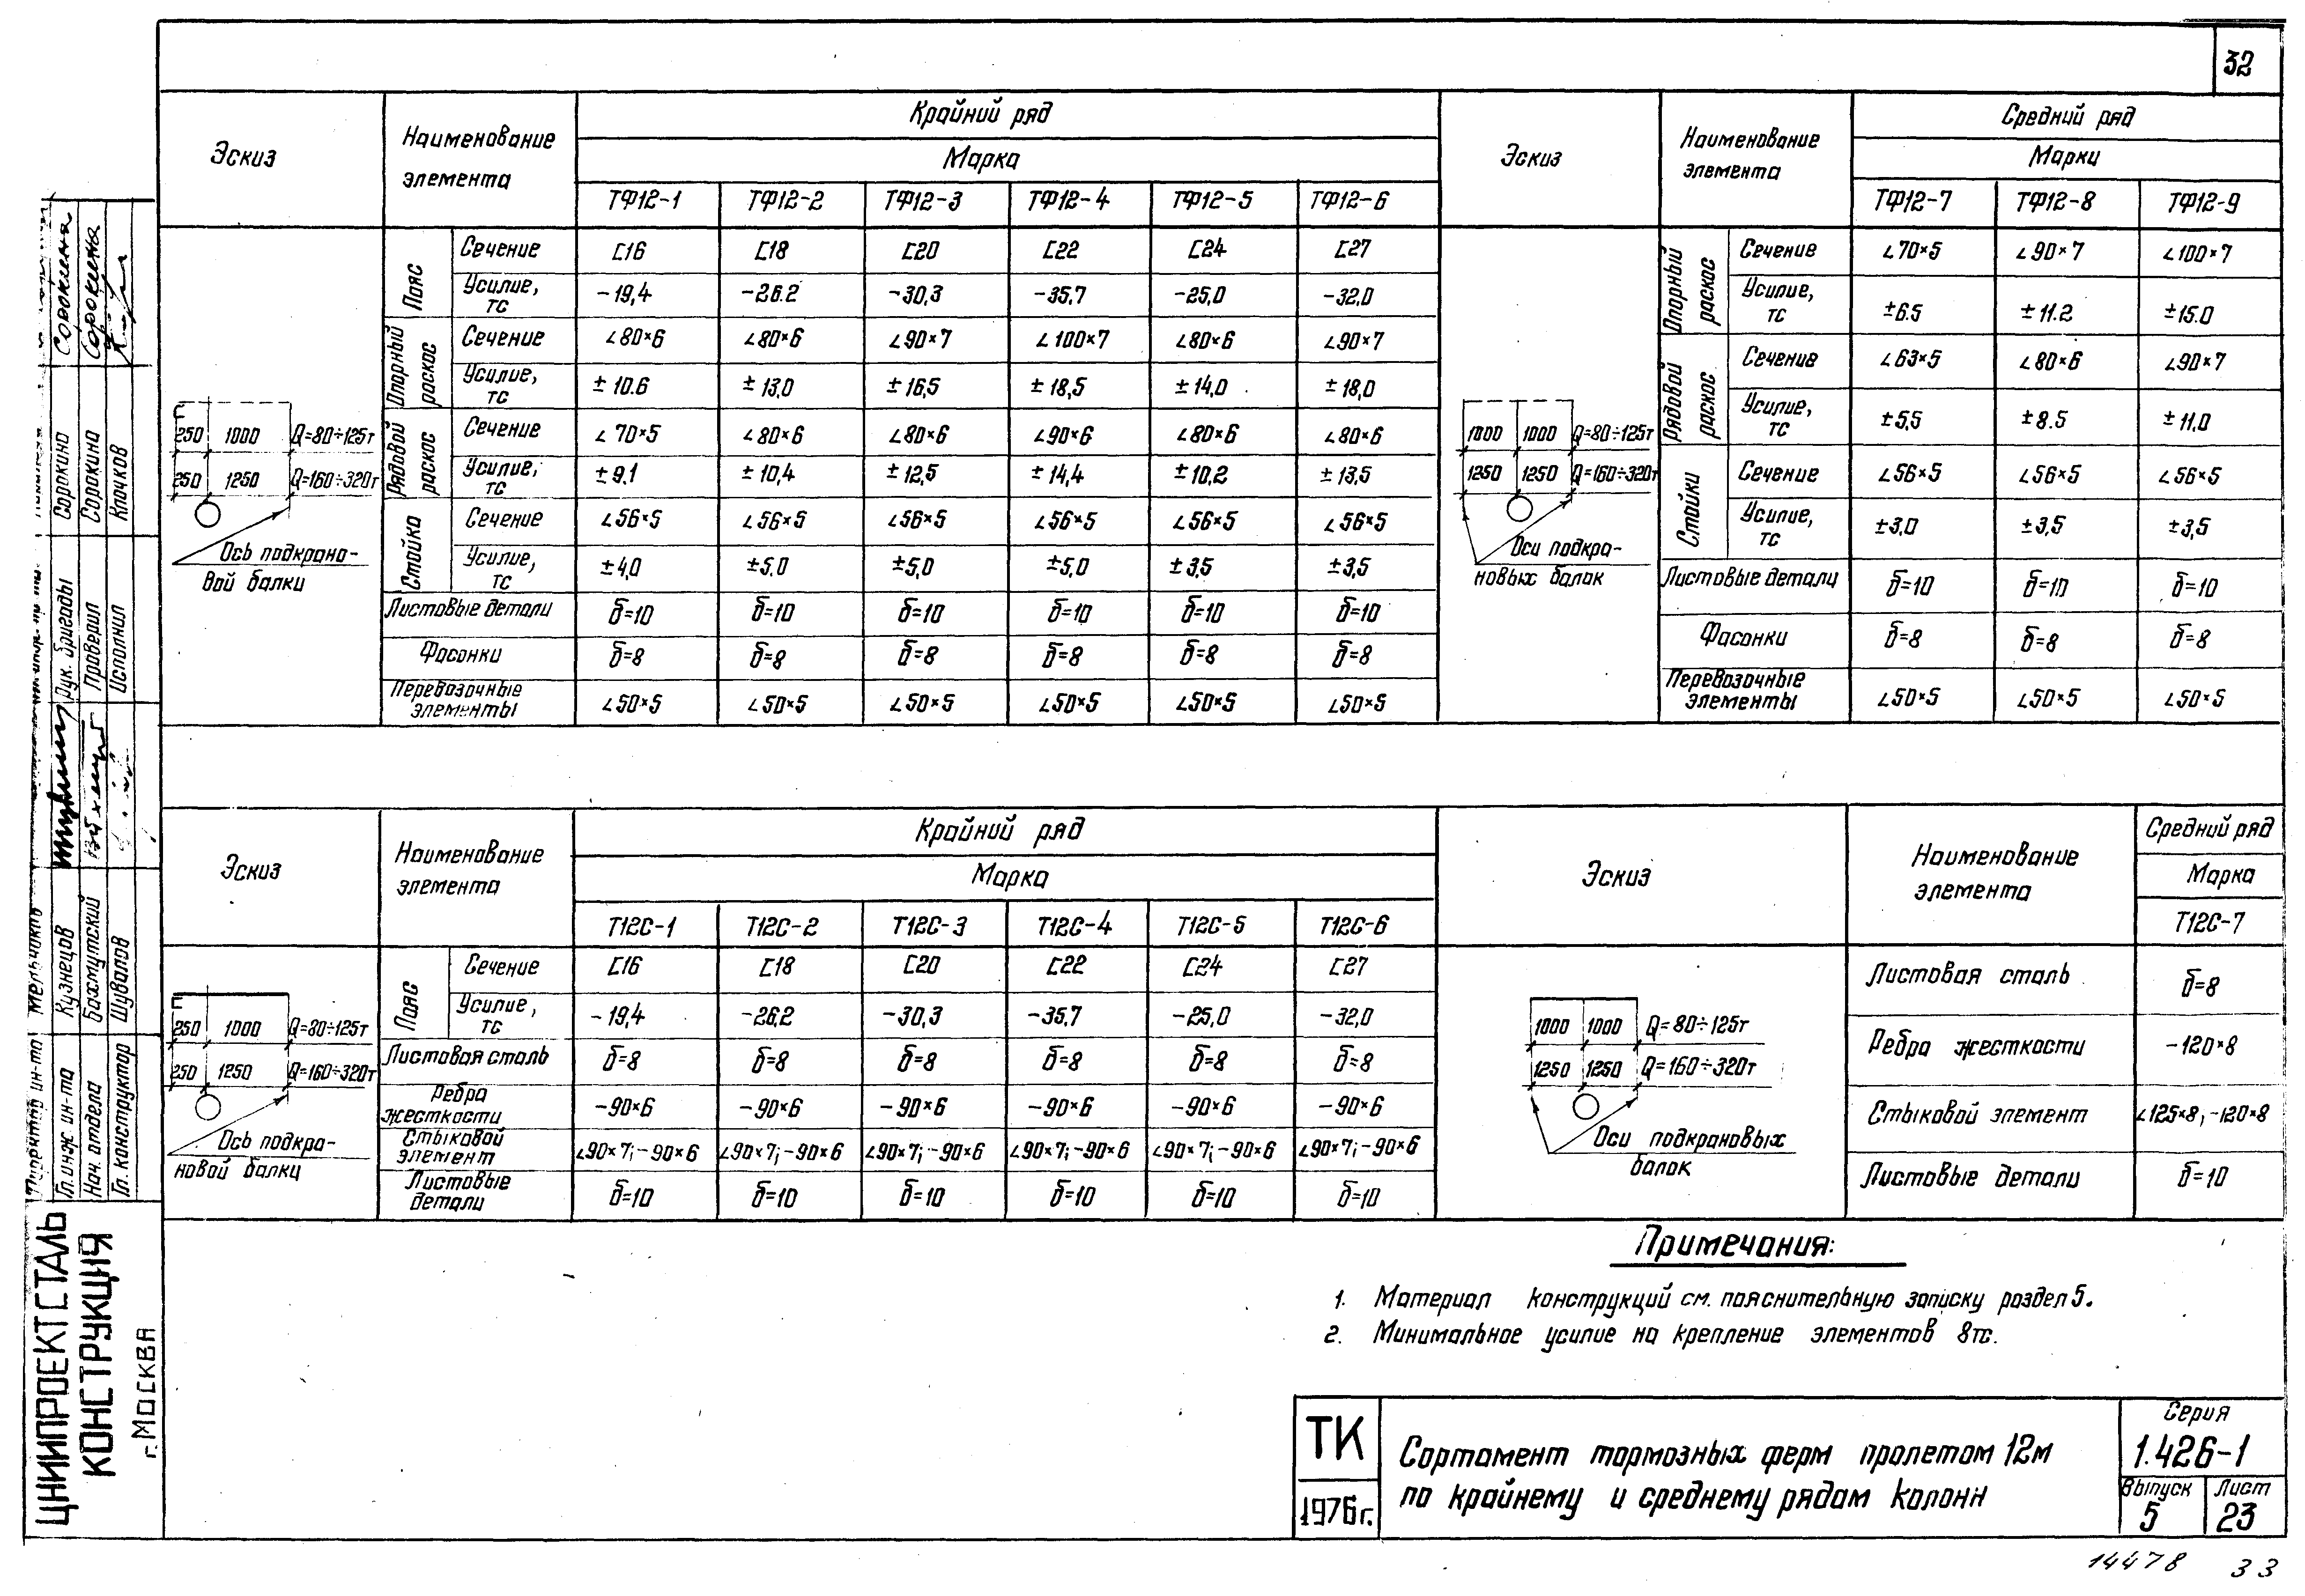 32
Эскиз
Наименование элемента
Крайний ряд
Марка
ТФ12-1 ТФ12-2 ТФ12-3 ТФ12-4 ТФ12-5 ТФ12-6
Пояс
Сечение [16 [18 [20 [22 [24 [27
Усилие, тс -19,4 -26.2 -30,3 -35,7 -25,0 -32,0
Опорный раскос
Сечение ∠80×6 ∠80×6 ∠90×7 ∠100×7 ∠80×6 ∠90×7
Усилие, тс ±10.6 ±13,0 ±16,5 ±18,5 ±14,0 ±18,0
Рядовой раскос
Сечение ∠70×5 ∠80×6 ∠80×6 ∠90×6 ∠80×6 ∠80×6
Усилие, тс ±9.1 ±10,4 ±12,5 ±14,4 ±10,2 ±13,5
Стойка
Сечение ∠56×5 ∠56×5 ∠56×5 ∠56×5 ∠56×5 ∠56×5
Усилие, тс ±4,0 ±5,0 ±5,0 ±5,0 ±3,5 ±3,5
Листовые детали δ=10 δ=10 δ=10 δ=10 δ=10 δ=10
Фасонки δ=8 δ=8 δ=8 δ=8 δ=8 δ=8
Перевозочные элементы ∠50×5 ∠50×5 ∠50×5 ∠50×5 ∠50×5 ∠50×5
250 1000 Q=80÷125т
250 1250 Q=160÷320т
Ось подкрано-
вой балки
Эскиз
Наименование элемента
Средний ряд
Марки
ТФ12-7 ТФ12-8 ТФ12-9
Опорный раскос
Сечение ∠70×5 ∠90×7 ∠100×7
Усилие, тс ±6.5 ±11.2 ±15.0
Рядовой раскос
Сечение ∠63×5 ∠80×6 ∠90×7
Усилие, тс ±5,5 ±8.5 ±11,0
Стойки
Сечение ∠56×5 ∠56×5 ∠56×5
Усилие, тс ±3,0 ±3,5 ±3,5
Листовые детали δ=10 δ=10 δ=10
Фасонки δ=8 δ=8 δ=8
Перевозочные элементы ∠50×5 ∠50×5 ∠50×5
1000 1000 Q=80÷125т
1250 1250 Q=160÷320т
Оси подкра-
новых балок
Эскиз
Наименование элемента
Крайний ряд
Марка
Т12С-1 Т12С-2 Т12С-3 Т12С-4 Т12С-5 Т12С-6
Пояс
Сечение [16 [18 [20 [22 [24 [27
Усилие, тс -19,4 -26,2 -30,3 -35,7 -25,0 -32,0
Листовая сталь δ=8 δ=8 δ=8 δ=8 δ=8 δ=8
Ребра жесткости -90×6 -90×6 -90×6 -90×6 -90×6 -90×6
Стыковой элемент ∠90×7;-90×6 ∠90×7;-90×6 ∠90×7;-90×6 ∠90×7;-90×6 ∠90×7;-90×6 ∠90×7;-90×6
Листовые детали δ=10 δ=10 δ=10 δ=10 δ=10 δ=10
250 1000 Q=80÷125т
250 1250 Q=160÷320т
Ось подкра-
новой балки
Эскиз
Наименование элемента
Средний ряд
Марка
Т12С-7
Листовая сталь δ=8
Ребра жесткости -120×8
Стыковой элемент ∠125×8;-120×8
Листовые детали δ=10
1000 1000 Q=80÷125т
1250 1250 Q=160÷320т
Оси подкрановых
балок
Примечания:
1. Материал конструкций см. пояснительную записку раздел 5.
2. Минимальное усилие на крепление элементов 8тс.
ТК
1976г.
Сортамент тормозных ферм пролетом 12м
по крайнему и среднему рядам колонн
Серия
1.426-1
Выпуск
5
Лист
23
14478 33
Директор ин-та Мельников
Гл. инж. ин-та Кузнецов
Нач. отдела Бахмутский
Гл. конструктор Шувалов
Рук. бригады Сорокина Сорокина
Проверил Сорокина Сорокина
Исполнил Клочков
ЦНИИПРОЕКТСТАЛЬ
КОНСТРУКЦИЯ
г. МОСКВА